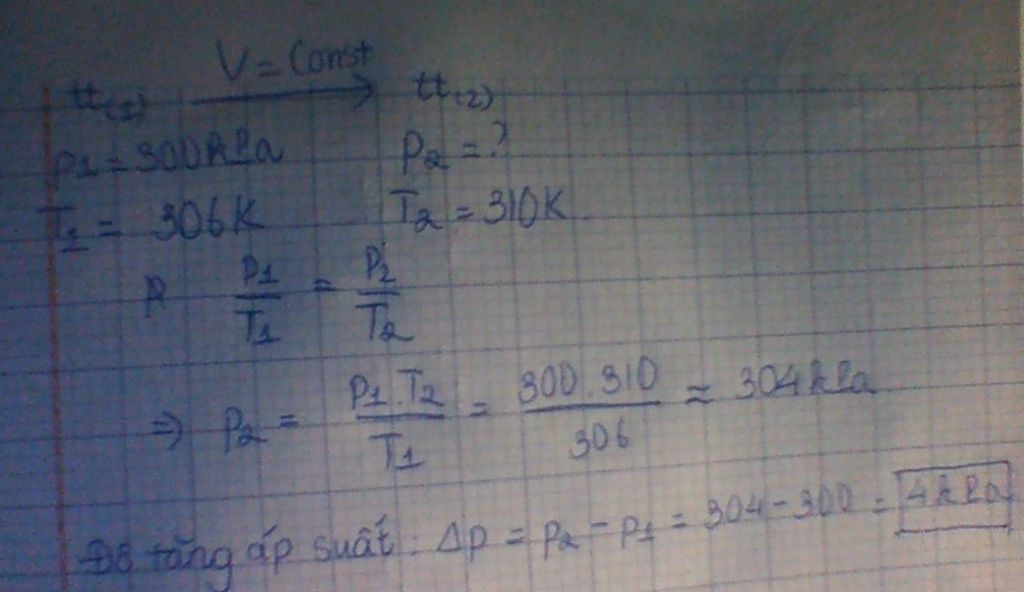 V = Const
tt(1) → tt(2)
P1 = 300kPa P2 = ?
T1 = 306K T2 = 310K
P1/T1 = P2/T2
=> P2 = P1.T2/T1 = 300.310/306 ≈ 304kPa
Độ tăng áp suất: Δp = p2 - p1 = 304 - 300 = 4kPa